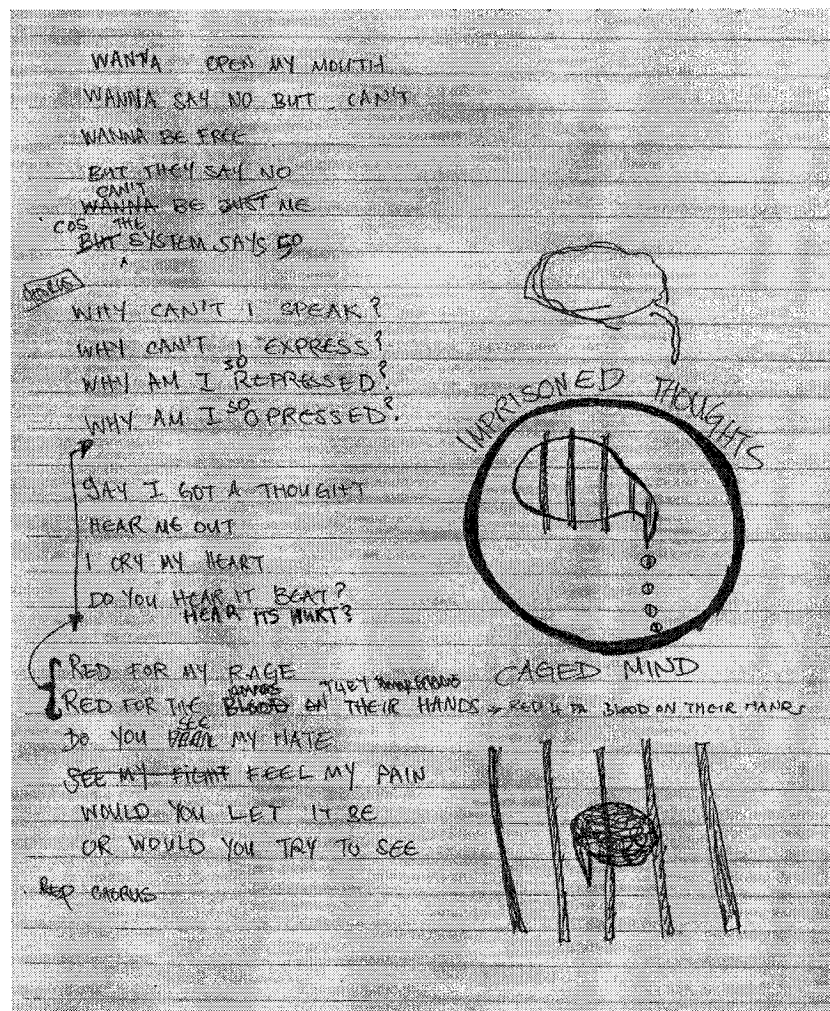 WANNA OPEN MY MOUTH
WANNA SAY NO BUT CAN'T
WANNA BE FREE
BUT THEY SAY NO
CAN'T
WANNA BE JUST ME
COS THE
BUT SYSTEM SAYS SO
CHORUS
WHY CAN'T I SPEAK?
WHY CAN'T I EXPRESS?
WHY AM I SO REPRESSED?
WHY AM I SO OPRESSED?
SAY I GOT A THOUGHT
HEAR ME OUT
I CRY MY HEART
DO YOU HEAR IT BEAT?
HEAR ITS HURT?
RED FOR MY RAGE
THEY
RED FOR THE BLOOD ON THEIR HANDS RED 4 DA BLOOD ON THEIR HANDS
SEE
DO YOU HEAR MY HATE
SEE MY FIGHT FEEL MY PAIN
WOULD YOU LET IT BE
OR WOULD YOU TRY TO SEE
REP CHORUS
IMPRISONED THOUGHTS
CAGED MIND